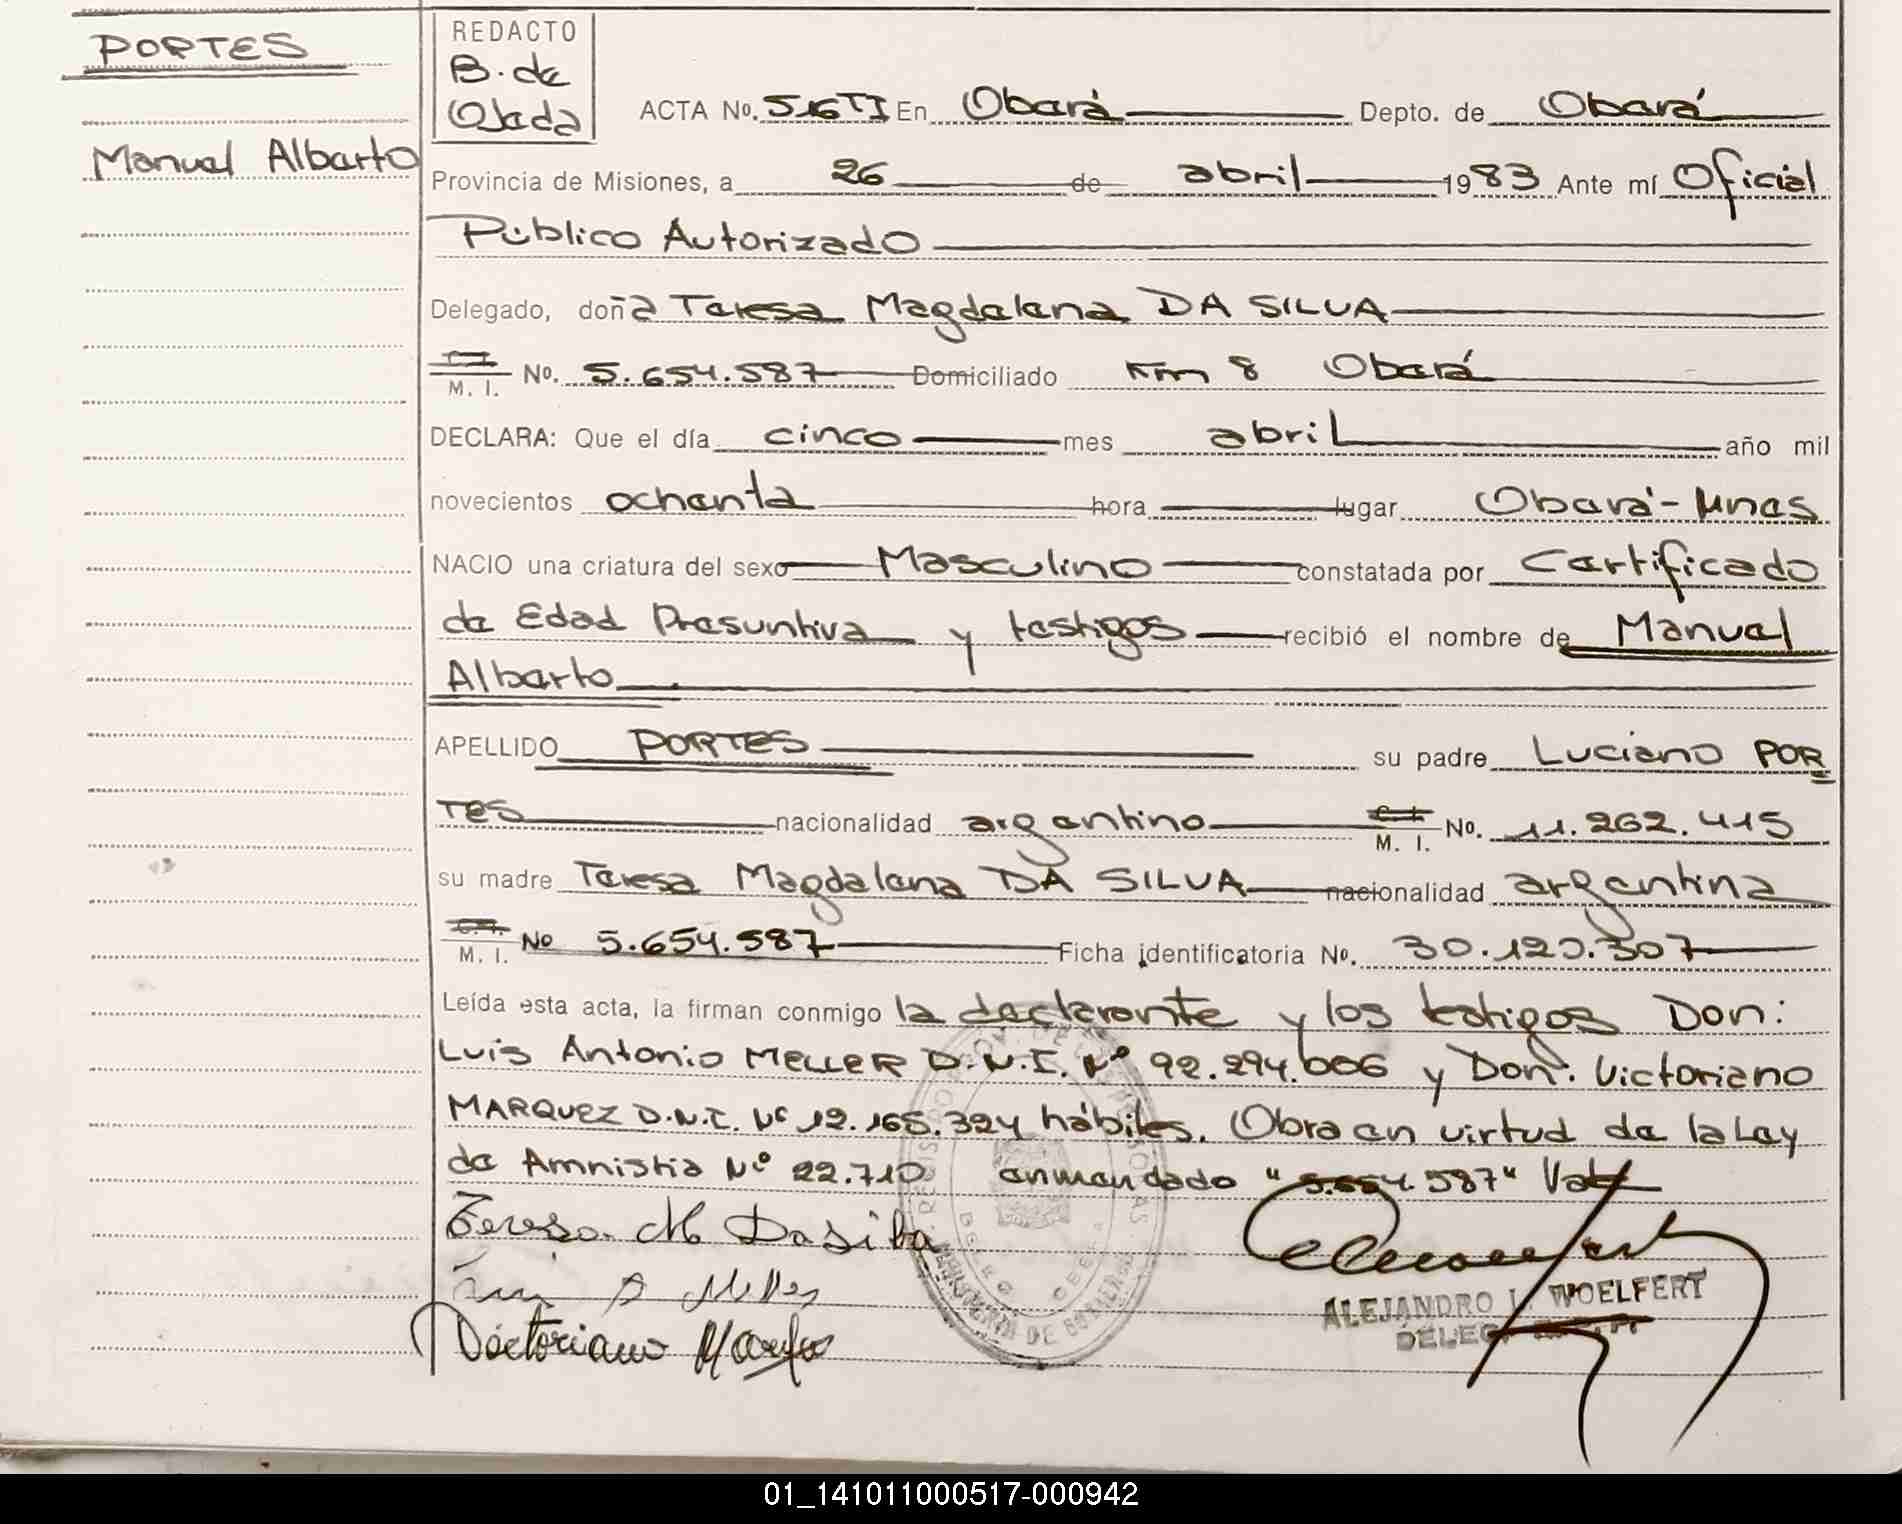 PORTES
Manuel Alberto
REDACTO
B. de
Ojeda
ACTA No. 516 TI En Oberá Depto. de Oberá
Provincia de Misiones, a 26 de abril 1983 Ante mí Oficial
Público Autorizado
Delegado, doña Teresa Magdalena DA SILVA
C. I.
M. I. No. 5.654.587 Domiciliado Km 8 Oberá
DECLARA: Que el día cinco mes abril año mil
novecientos ochenta hora lugar Oberá - Mnes
NACIO una criatura del sexo Masculino constatada por Certificado
de Edad Presuntiva y testigos recibió el nombre de Manuel
Alberto
APELLIDO PORTES su padre Luciano POR
TES nacionalidad argentino C. I. M. I. No. 11.262.415
su madre Teresa Magdalena DA SILVA nacionalidad argentina
C. I.
M. I. No 5.654.587 Ficha identificatoria No. 30.120.307
Leída esta acta, la firman conmigo la declarante y los testigos Don:
Luis Antonio MELLER D.N.I. Nº 92.294.006 y Don. Victoriano
MARQUEZ D.N.I. Nº 12.165.324 hábiles. Obra en virtud de la Ley
de Amnistia Nº 22.710 enmendado "5.654.587" Vale
Teresa M Dasilva
Luis A Meller
Victoriano Marquez
ALEJANDRO L. WOELFERT
01_141011000517-000942